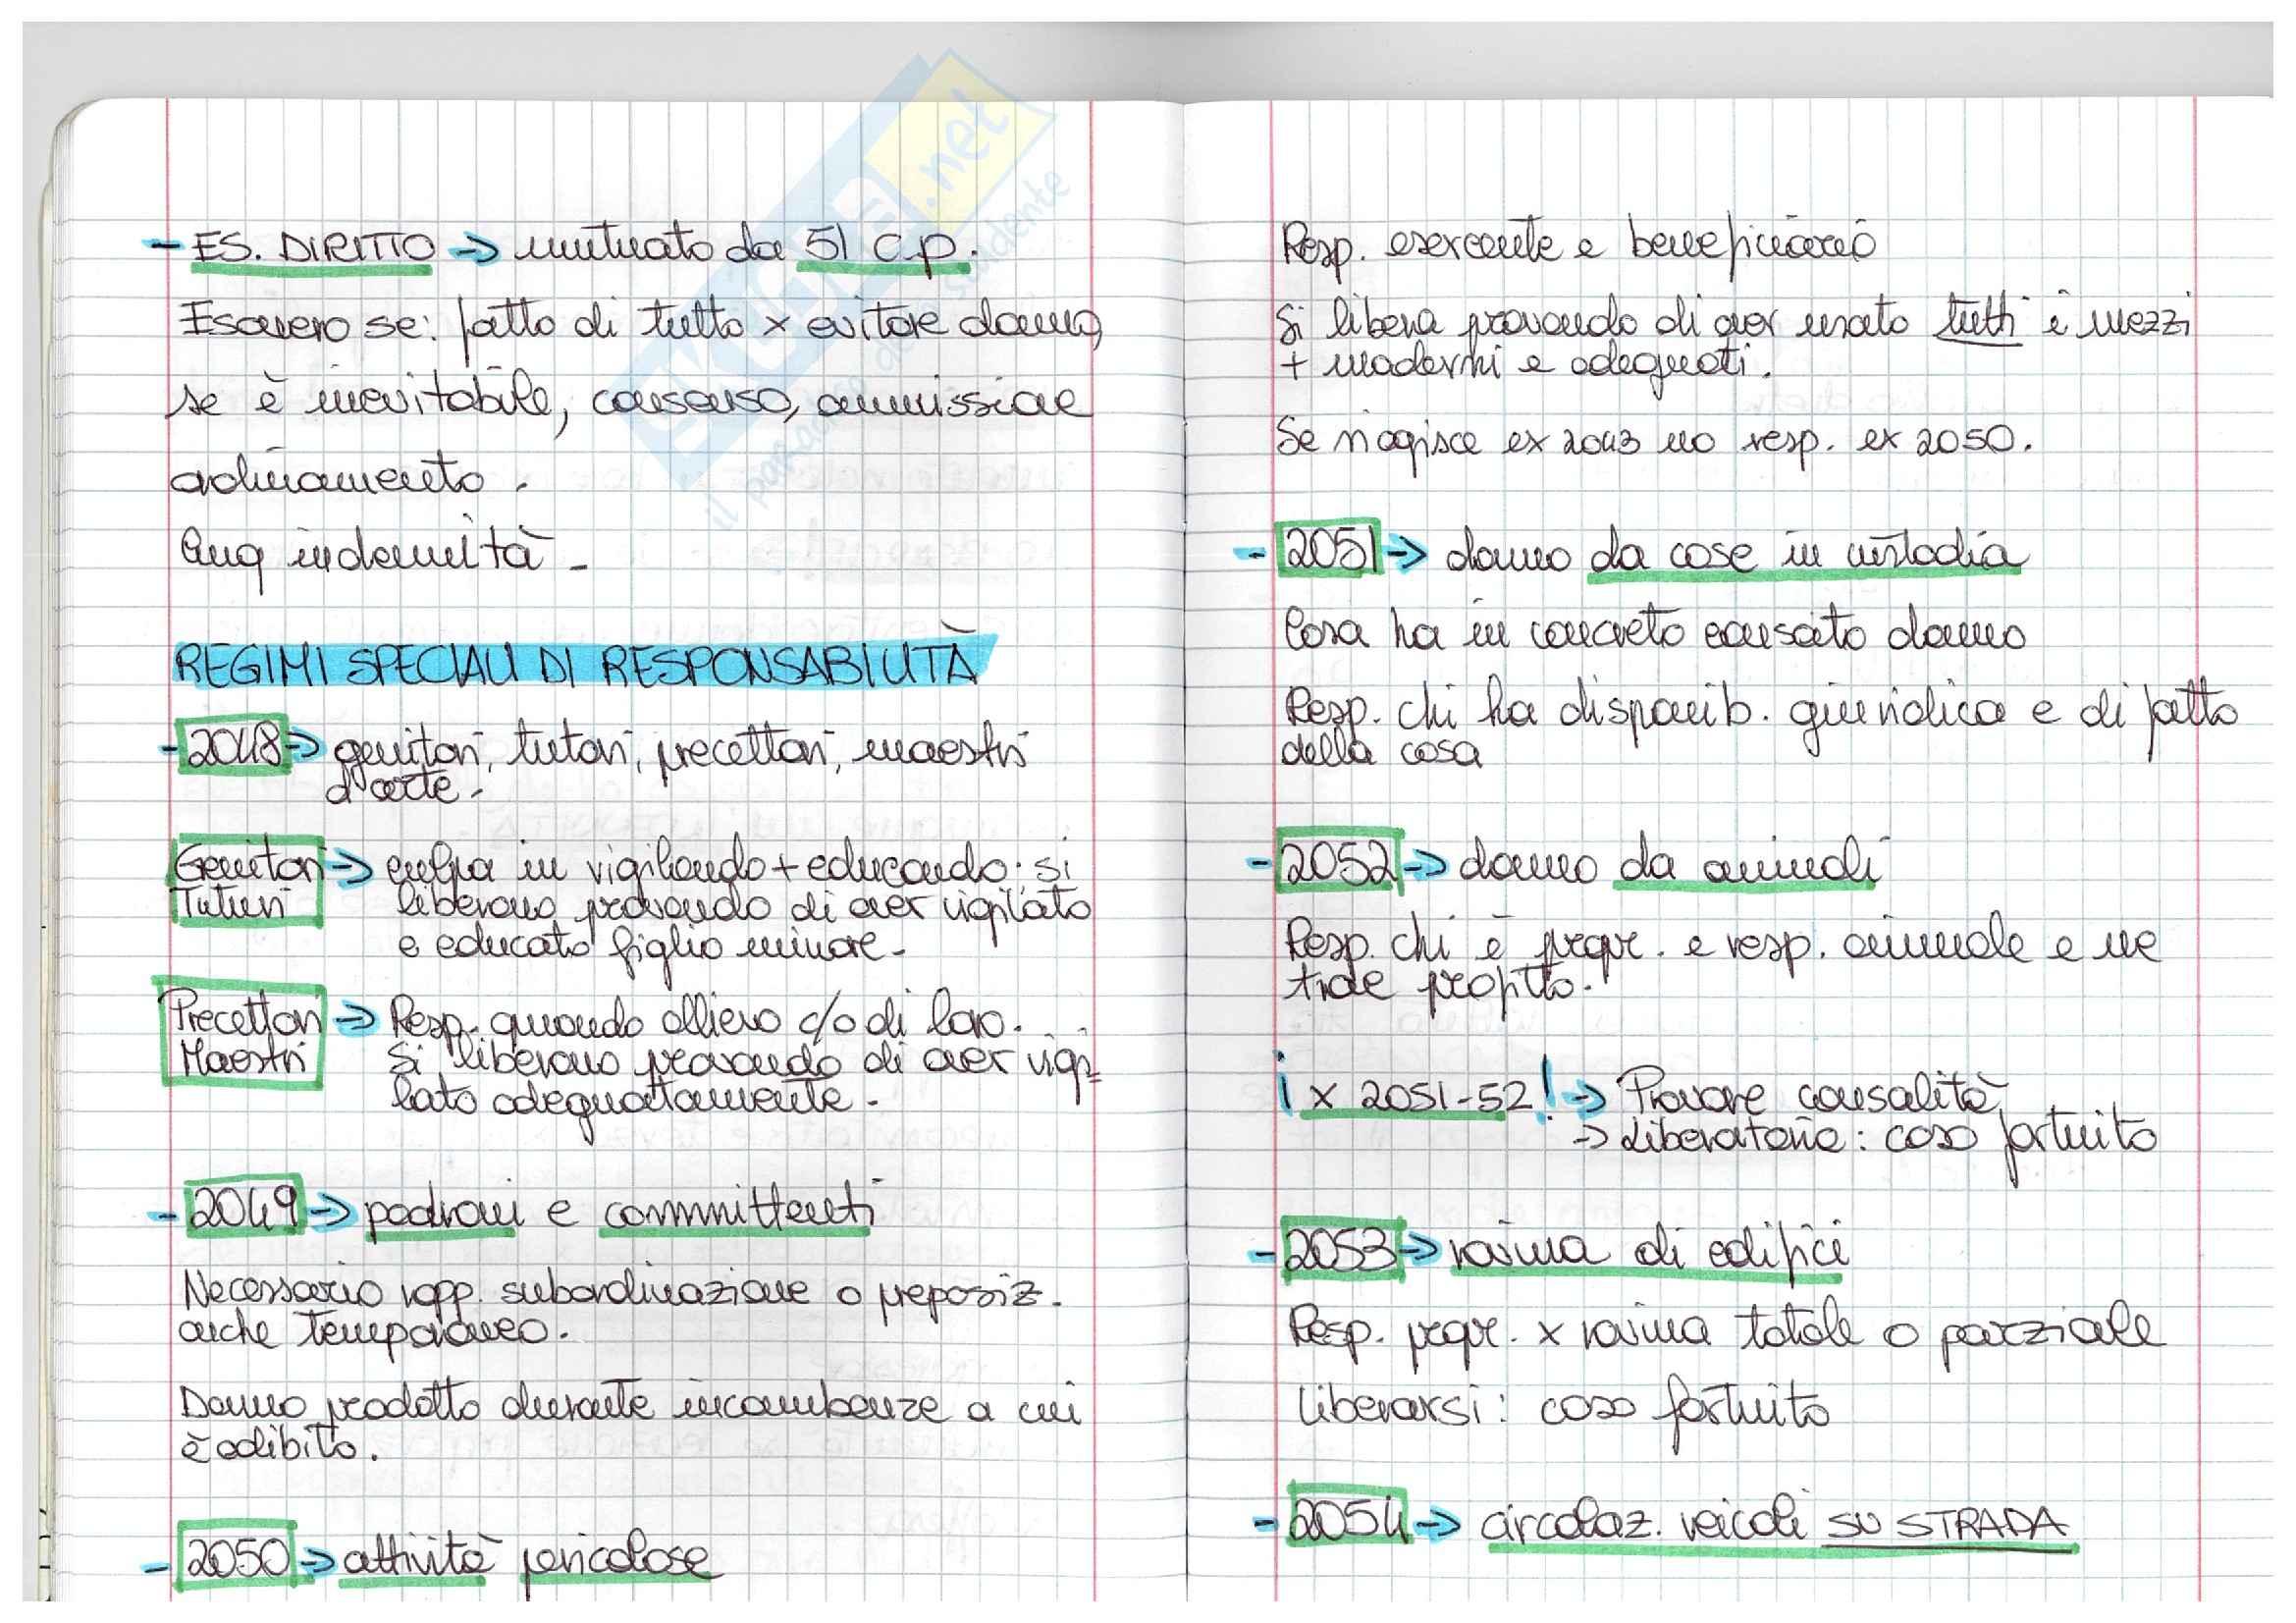 - ES. DIRITTO → mutuato da 51 c.p.
Esonero se: fatto di tutto x evitare danno,
se è inevitabile, consenso, ammissione
ordinamento.
Cmq indennità -
REGIMI SPECIALI DI RESPONSABILITÀ
- 2048 → genitori, tutori, precettori, maestri
d'arte -
Genitori → culpa in vigilando + educando: si
Tutori liberano provando di aver vigilato
e educato figlio minore -
Precettori → Resp. quando allievo c/o di loro.
Maestri Si liberano provando di aver vigi=
lato adeguatamente -
- 2049 → padroni e committenti
Necessario rapp. subordinazione o preposiz.
anche temporaneo.
Danno prodotto durante incombenze a cui
è adibito.
- 2050 → attività pericolose
Resp. esercente e beneficiario
Si libera provando di aver usato tutti i mezzi
+ moderni e adeguati.
Se si agisce ex 2043 no resp. ex 2050.
- 2051 → danno da cose in custodia
Cosa ha in concreto causato danno
Resp. chi ha disponib. giuridica e di fatto
della cosa
- 2052 → danno da animali
Resp. chi è propr. e resp. animale e ne
trae profitto.
¡ x 2051-52! → Provare causalità
→ Liberatoria: caso fortuito
- 2053 → rovina di edifici
Resp. propr. x rovina totale o parziale
Liberarsi: caso fortuito
- 2054 → circolaz. veicoli SU STRADA
SKUOLA.net
il paradiso dello studente